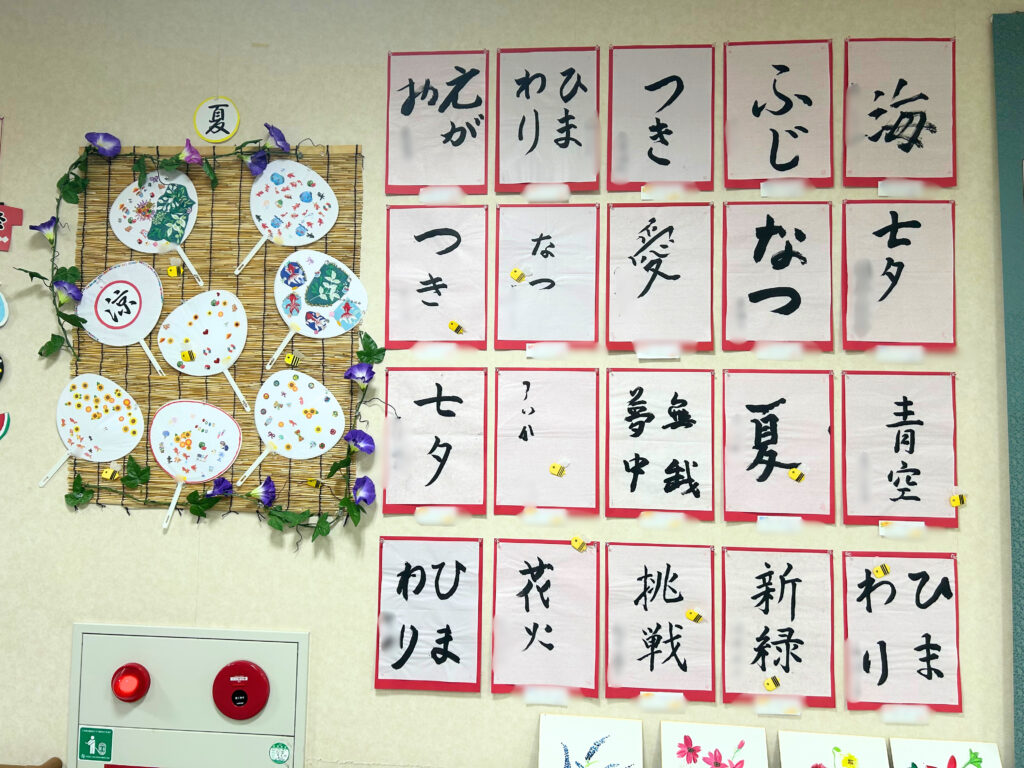 夏
涼
えが
お
ひま
わり
つき
ふじ
海
つき
なつ
愛
なつ
七夕
七夕
無我
夢中
夏
青空
ひま
わり
花火
挑戦
新緑
ひま
わり